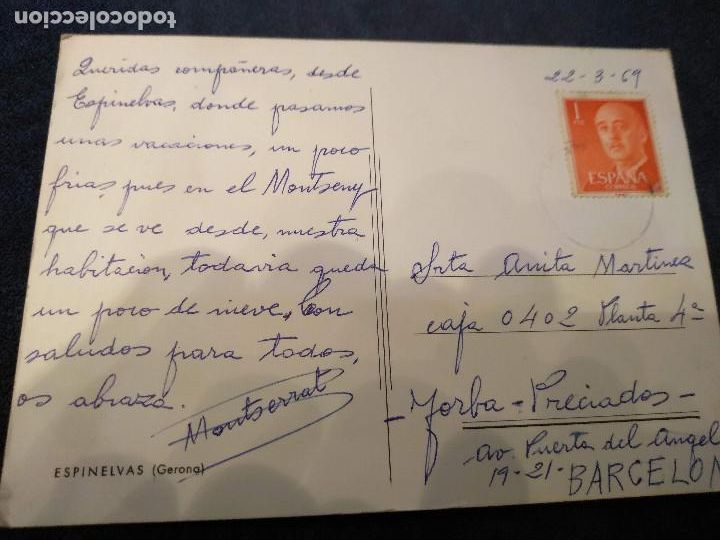 todocoleccion.net
Queridas compañeras, desde
Espinelvas, donde pasamos
unas vacaciones, un poco
frias, pues en el Montseny
que se ve desde, nuestra
habitación, todavia queda
un poco de nieve, Con
saludos para todos,
os abraza.
Montserrat
ESPINELVAS (Gerona)
22-3-69
1
ESPAÑA
CORREOS
Srta Anita Martinez
caja 0402 Planta 4ª
- Jorba - Preciados -
Av. Puerta del Angel
19-21- BARCELON